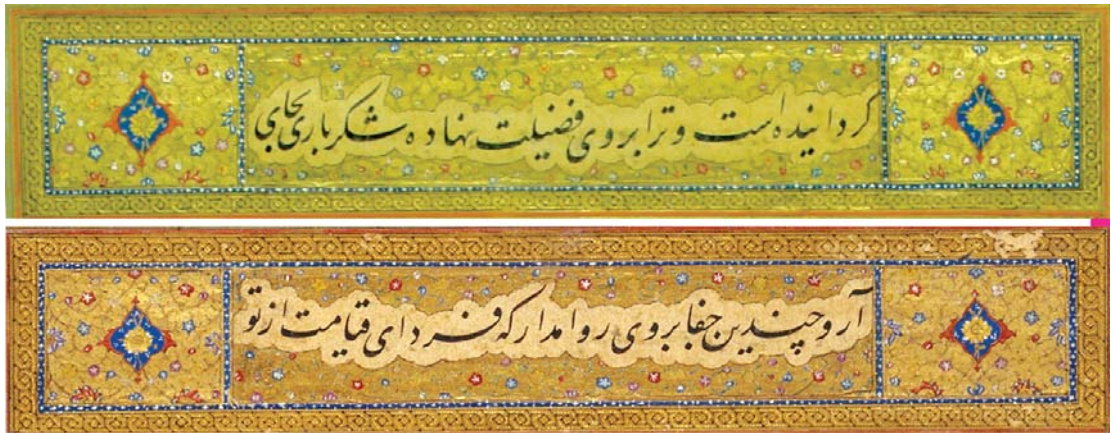 گردانیده است و ترا بروی فضیلت نهاده شکر باری بجای
آر و چندین جفا بروی روا مدار که فردای قیامت از تو